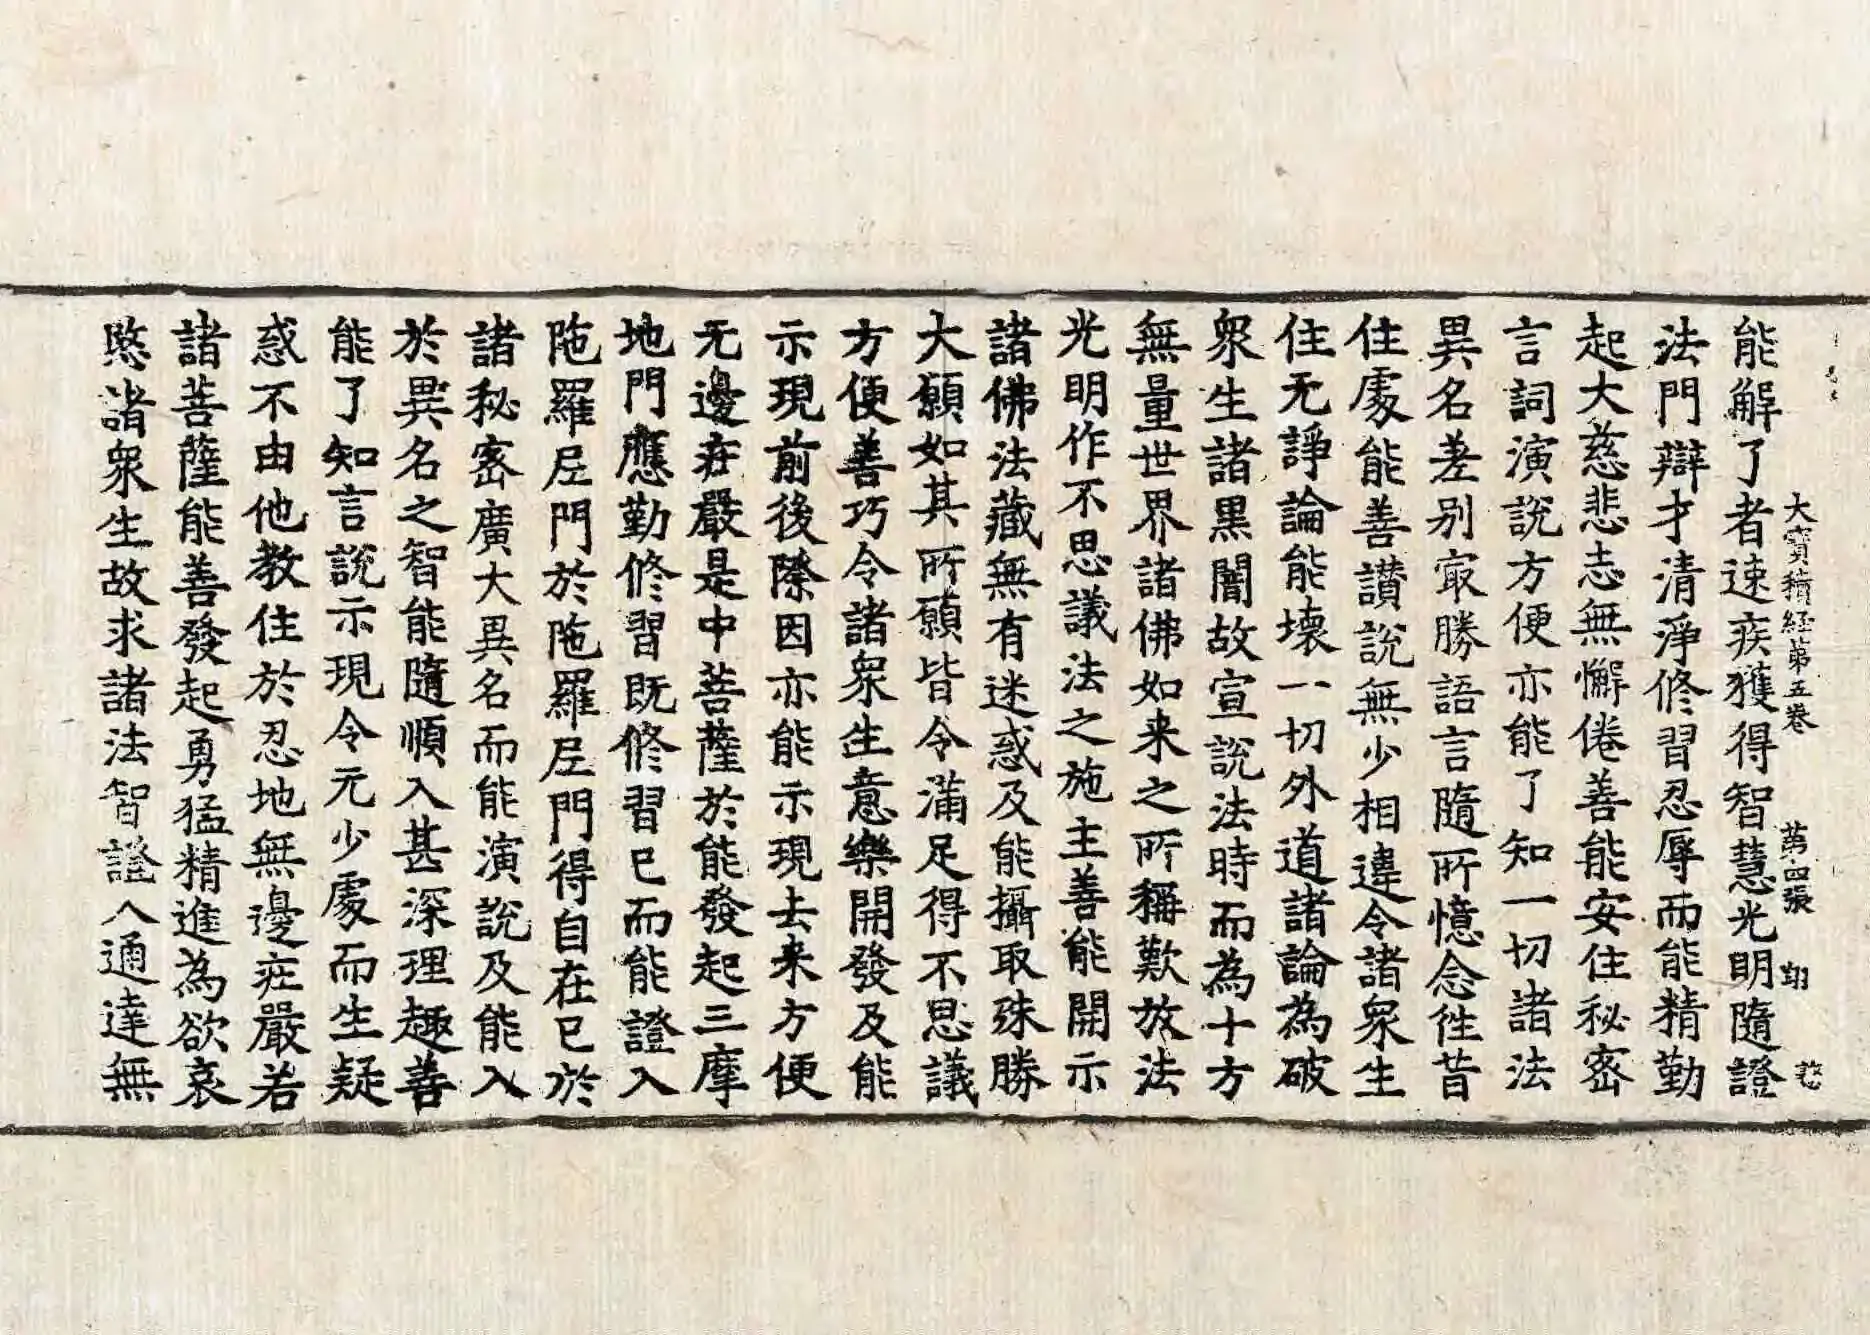 大寶積経第五卷 第四張 翔
能解了者速疾獲得智慧光明隨證
法門辯才清淨修習忍辱而能精勤
起大慈悲志無懈倦善能安住秘密
言詞演說方便亦能了知一切諸法
異名差別寂勝語言隨所憶念徃昔
住處能善讃說無少相違令諸衆生
住无諍論能壞一切外道諸論為破
衆生諸黒闇故宣說法時而為十方
無量世界諸佛如来之所稱歎放法
光明作不思議法之施主善能開示
諸佛法藏無有迷惑及能攝取殊勝
大願如其所願皆令滿足得不思議
方便善巧令諸衆生意樂開發及能
示現前後際因亦能示現去来方便
无邊莊嚴是中菩薩於能發起三摩
地門應勤修習既修習已而能證入
陁羅尼門於陁羅尼門得自在已於
諸秘密廣大異名而能演說及能入
於異名之智能隨順入甚深理趣善
能了知言說示現令无少處而生疑
惑不由他教住於忍地無邊莊嚴若
諸菩薩能善發起勇猛精進為欲哀
愍諸衆生故求諸法智證入通達無